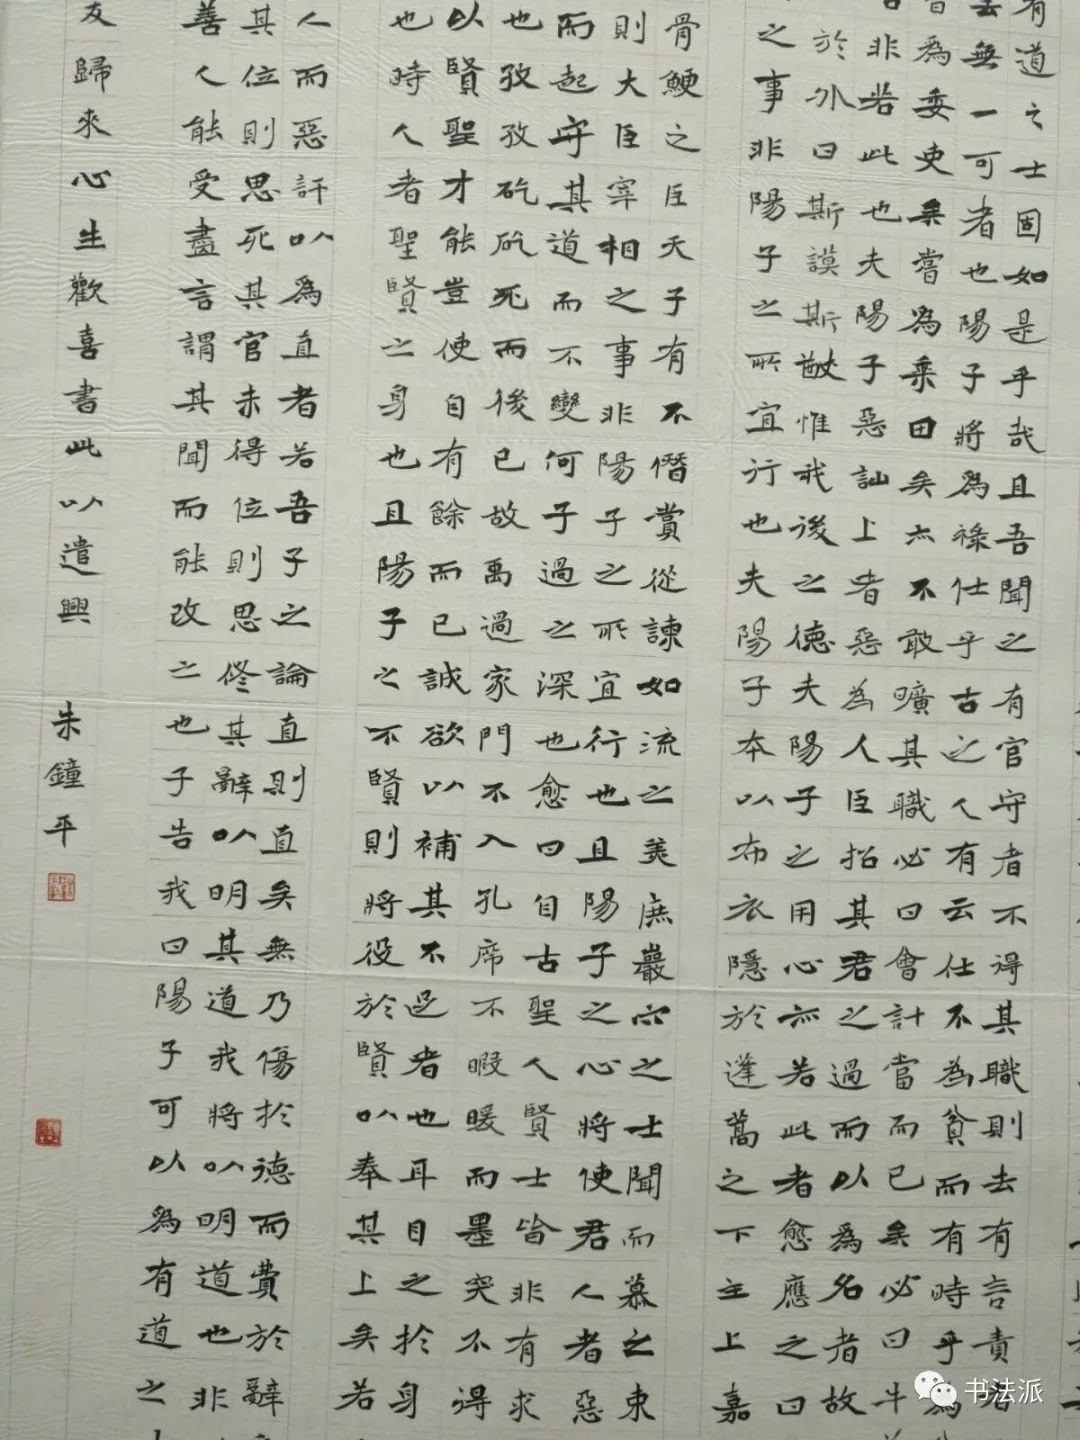 有道之士固如是乎哉且吾聞之有官守者不得其職則去有言責者
去無一可者也陽子將為祿仕乎古之人有云仕不為貧而有時乎為
嘗為委吏矣嘗為乘田矣亦不敢曠其職必曰會計當而已矣必曰牛
非若此也夫陽子惡訕上者惡為人臣招其君之過而以為名者故
於外曰斯謨斯猷惟我後之德夫陽子之用心亦若此者愈應之曰
之事非陽子之所宜行也夫陽子本以布衣隱於蓬蒿之下主上嘉
骨鯁之臣天子有不僭賞從諫如流之美庶巖穴之士聞而慕之束
則大臣宰相之事非陽子之所宜行也且陽子之心將使君人者惡
而起守其道而不變何子過之深也愈曰自古聖人賢士皆非有求
也孜孜矻矻死而後已故禹過家門不入孔席不暇暖而墨突不得
以賢聖才能豈使自有餘而已誠欲以補其不足者也耳目之於身
也時人者聖賢之身也且陽子之不賢則將役於賢以奉其上矣若
人而惡訐以為直者若吾子之論直則直矣無乃傷於德而費於辭
其位則思死其官未得位則思修其辭以明其道我將以明道也非
善人能受盡言謂其聞而能改之也子告我曰陽子可以為有道之
友歸來心生歡喜書此以遣興 朱鐘平
书法派